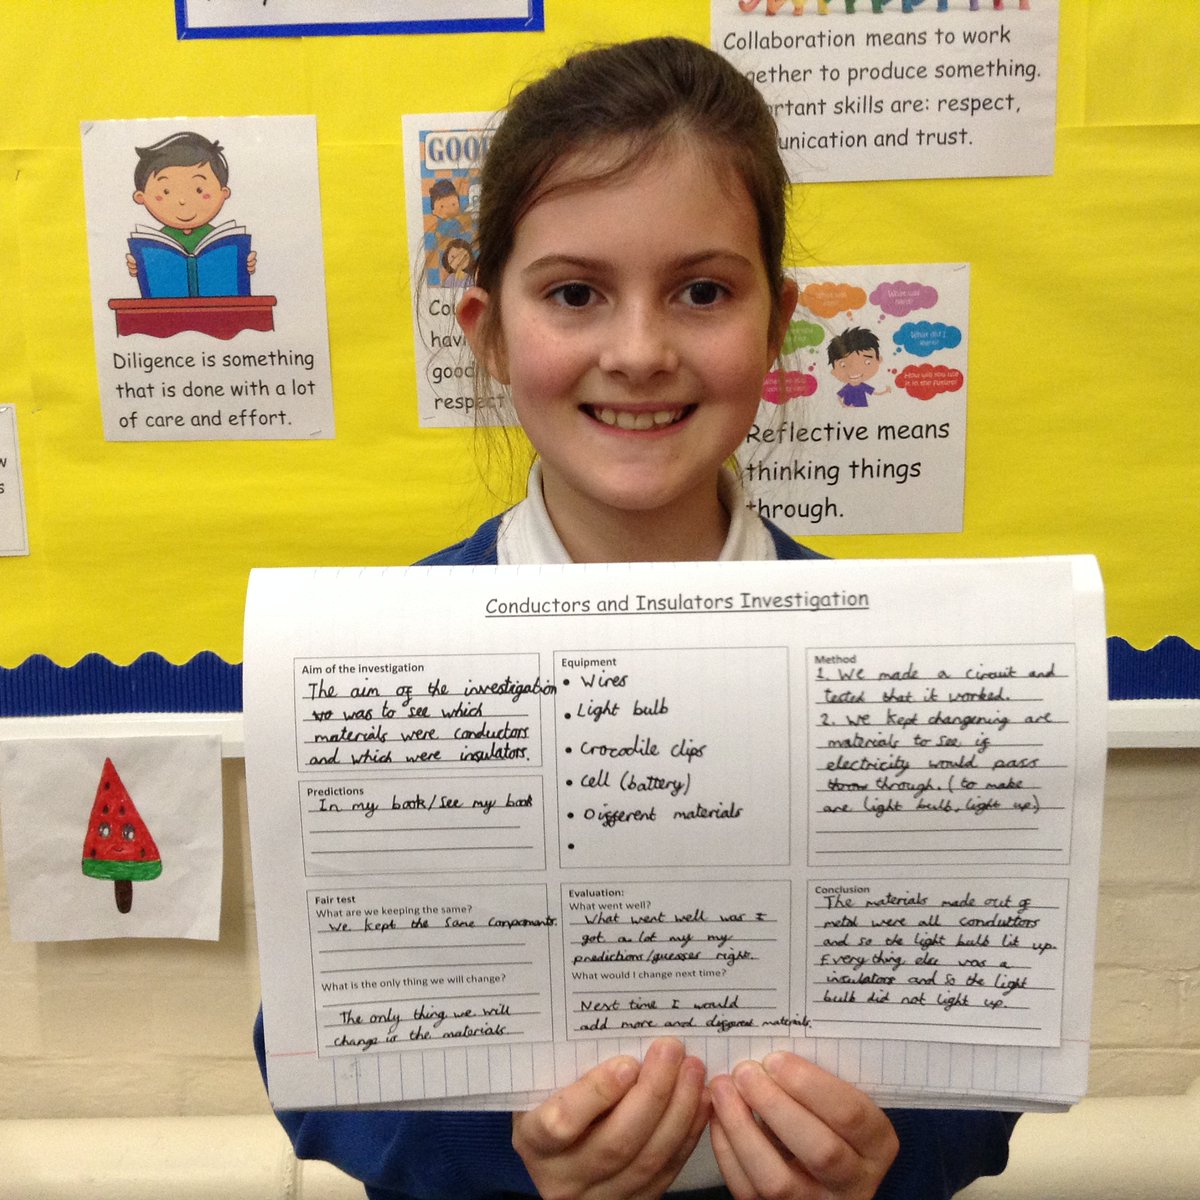 Collaboration means to work
together to produce something.
skills are: respect,
and trust.
GOO
Diligence is something
that is done with a lot
of care and effort.
good
respect
What did I
learn?
How will you use
it in the future?
Reflective means
thinking things
through.
Conductors and Insulators Investigation
Aim of the investigation
The aim of the investigation
was to see which
materials were conductors
and which were insulators.
Predictions
In my book/see my book
Equipment
• Wires
• Light bulb
• Crocodile clips
• Cell (battery)
• Different materials
•
Method
1. We made a circuit and
tested that it worked.
2. We kept changening are
materials to see if
electricity would pass
through. (to make
are light bulb, light up)
Fair test
What are we keeping the same?
We kept the same components.
What is the only thing we will change?
The only thing we will
change is the materials
Evaluation:
What went well?
What went well was I
got a lot my my
predictions/guesses right.
What would I change next time?
Next time I would
add more and different materials.
Conclusion
The materials made out of
metal were all conductors
and so the light bulb lit up.
Everything else was a
insulators and so the light
bulb did not light up.